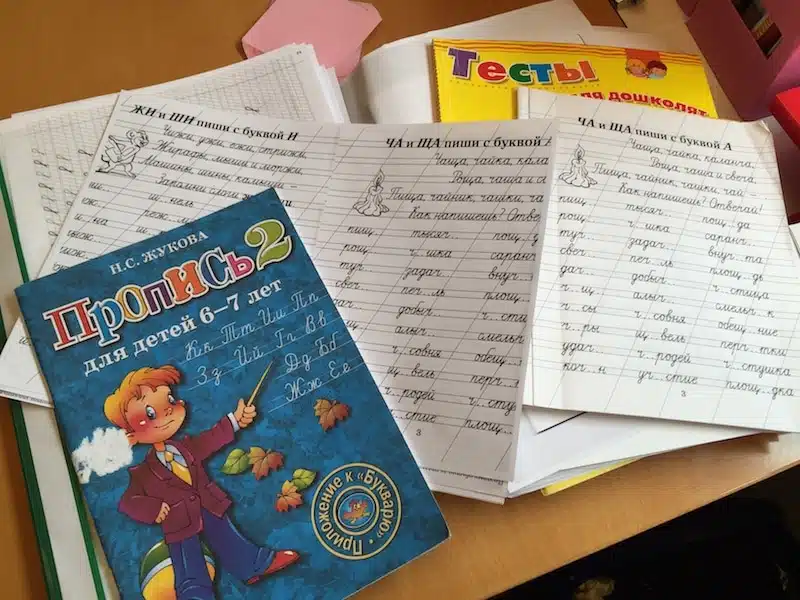 Тесты
ЖИ и ШИ пиши с буквой И
Чижи, ужи, ежи, стрижи,
Жирафы, мыши и моржи,
Машины, шины, камыши
Запомни слоги
ш... нель
ЧА и ЩА пиши с буквой А
Чаща, чайка, кала
Роща, чаша и св
Пища, чайник, чашки, ча
Как напишешь? Отве
пищ... тысяч... пощ..
рощ... ч...шка саран
туч... задач... внуч...
свеч... печ...ль площ...
дач... добыч... ч...сти
щ... алыч... смельч
ч...совня обещ...
щ...вель перч...
ч...родей ч...сту
...стие площ...
3
ЧА и ЩА пиши с буквой А
Чаща, чайка, каланча,
Роща, чаша и свеча,
Пища, чайник, чашки, чай –
Как напишешь? Отвечай!
пищ... тысяч... пощ...да
рощ... ч...шка саранч...
туч... задач... внуч...та
свеч... печ...ль площ...дь
дач... добыч... ч...стица
ч...щ... алыч... смельч...к
ч...сы ч...совня обещ...ние
ч...ры щ...вель перч...тки
удач... ч...родей ч...стушка
кач...н уч...стие площ...дка
3
Н.С. ЖУКОВА
ПРОПИСЬ 2
для детей 6–7 лет
Кк Тт Ии Пп
Зз Йй Гг Вв
Дд Бб
Жж Ее
Приложение к «Букварю»